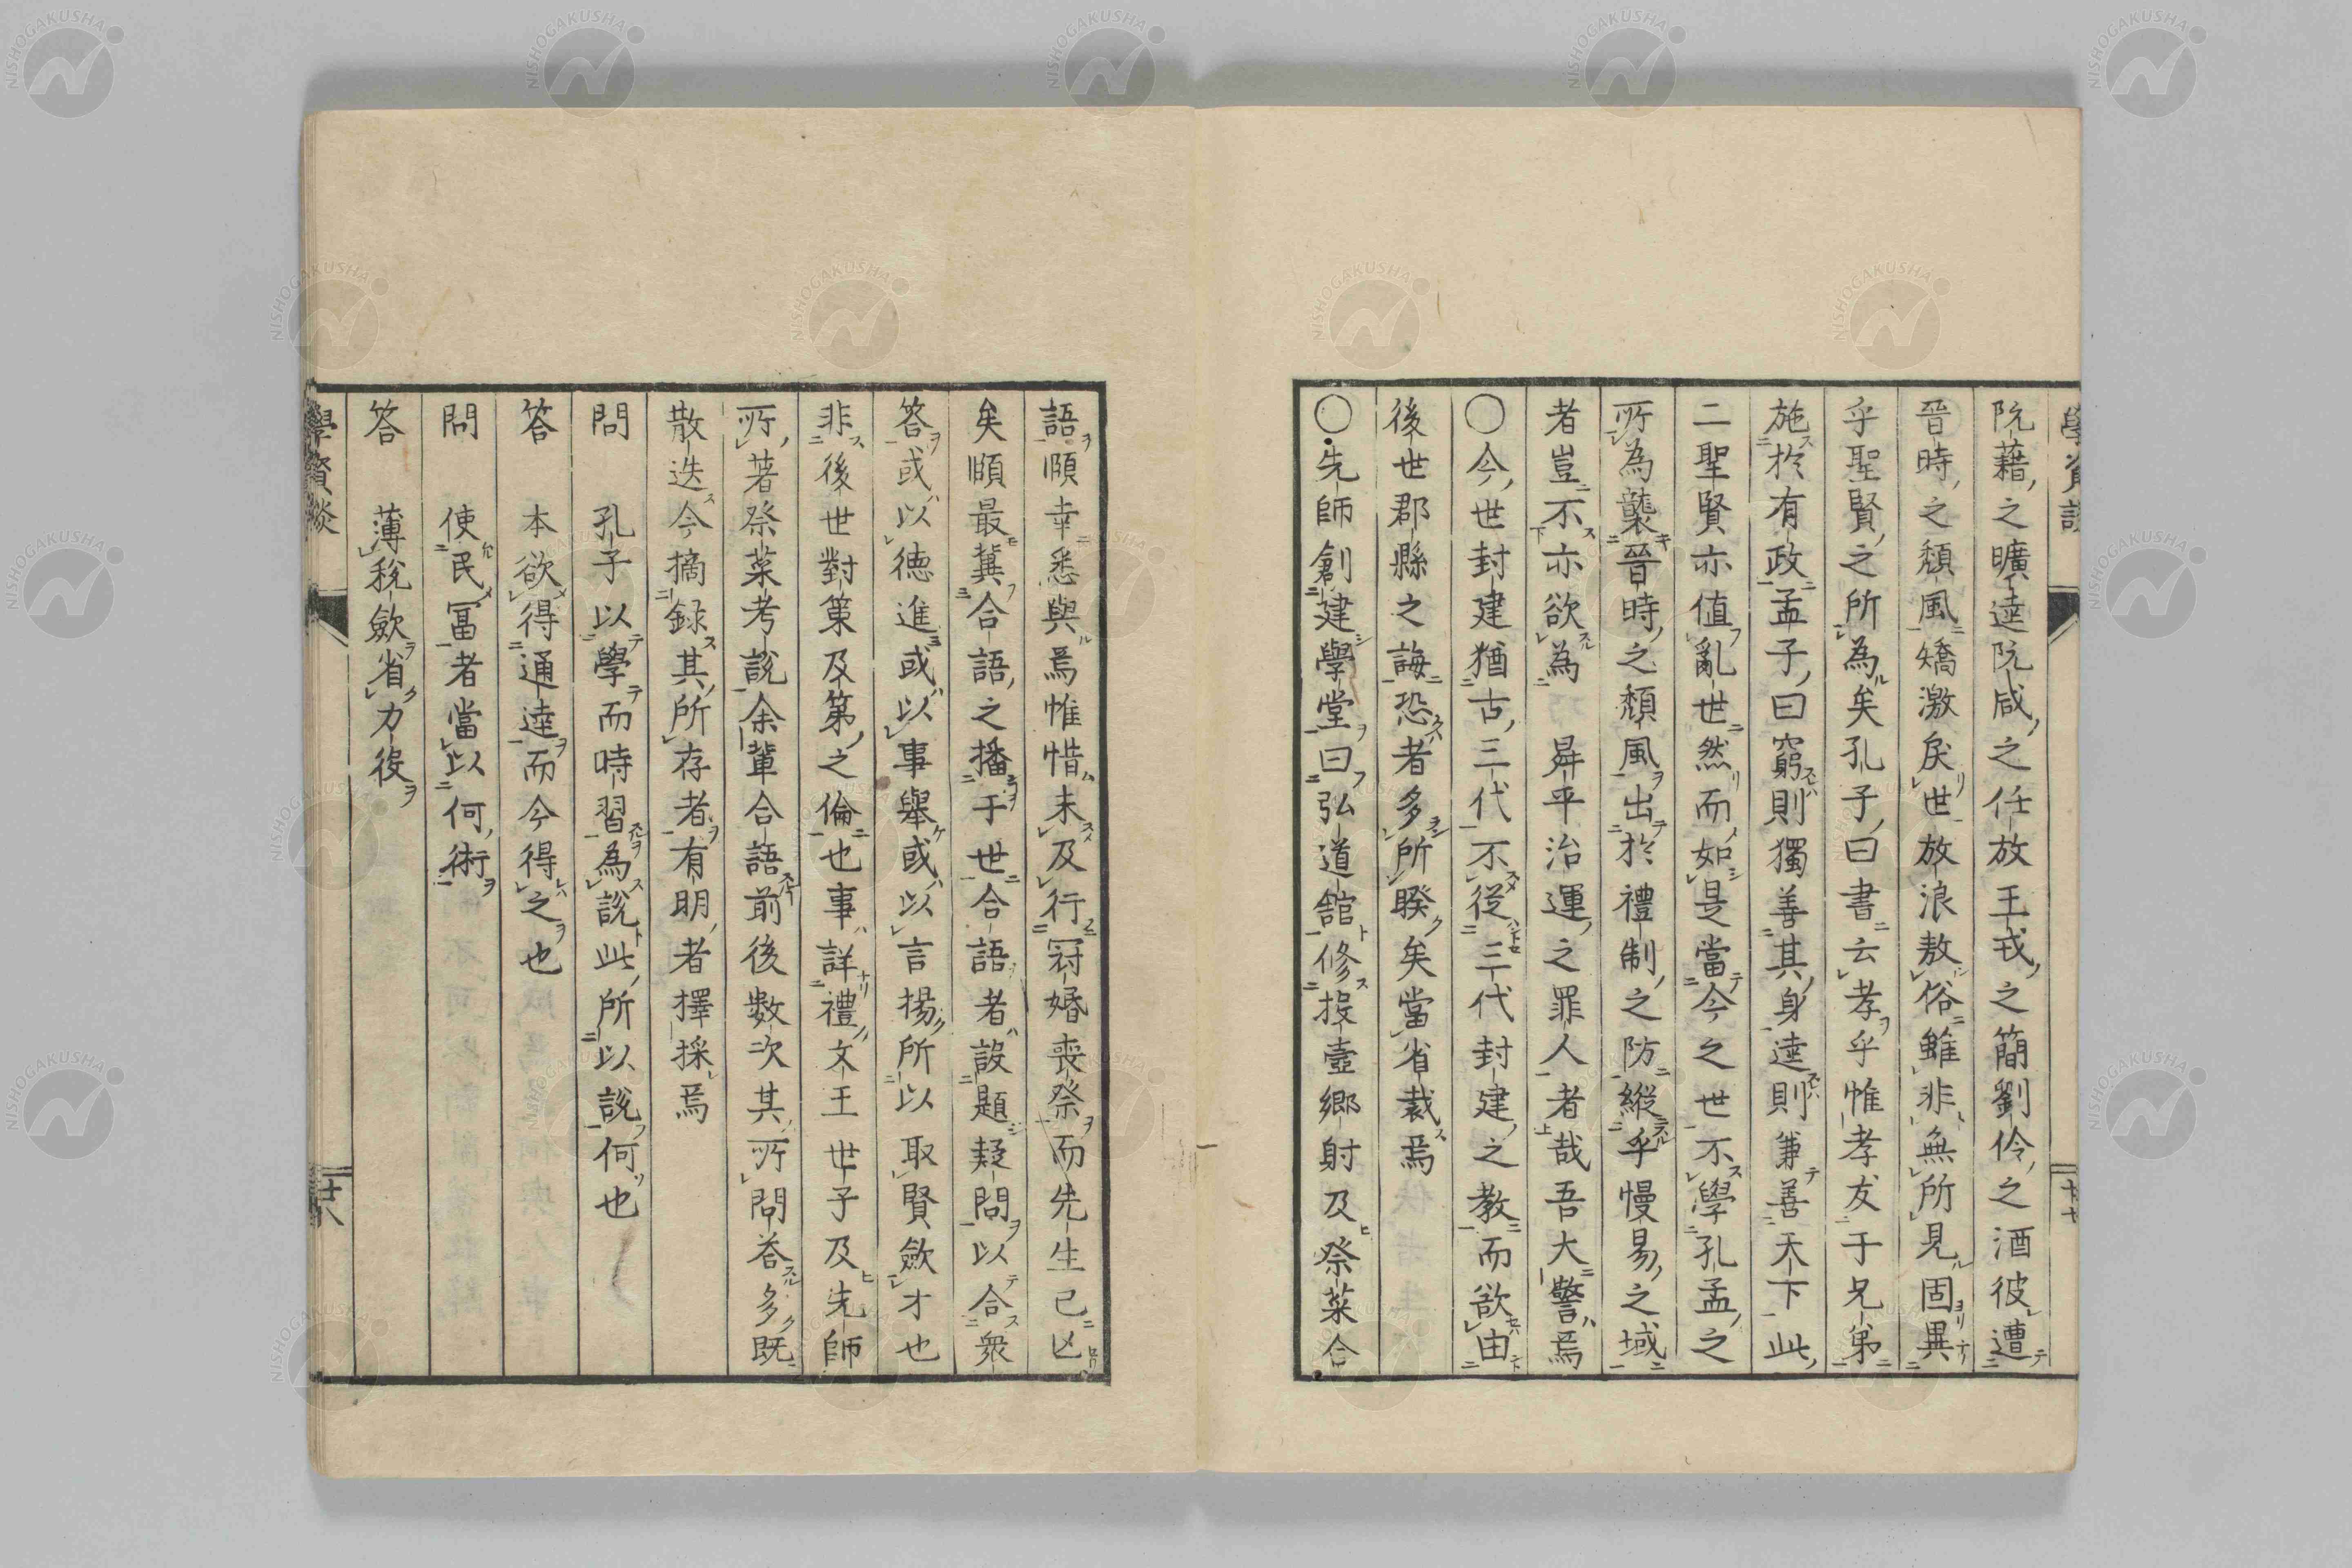 阮藉之曠達阮咸之任放王戎之簡劉伶之酒彼遭
晉時之頹風矯激戻世放浪敖俗雖非無所見固異
乎聖賢之所為矣孔子曰書云孝乎惟孝友于兄弟
施於有政孟子曰窮則獨善其身達則兼善天下此
二聖賢亦值亂世然而如是當今之世不學孔孟之
所為襲晉時之頹風出於禮制之防縱乎慢易之域
者豈不亦欲為 昇平治運之罪人者哉吾大警焉
○今世封建猶古三代不從三代封建之教而欲由
後世郡縣之誨恐者多所暌矣當省裁焉
○先師創建學堂曰弘道舘修投壺鄉射及祭菜合
語頤幸悉與焉惟惜未及行冠婚喪祭而先生已凶
矣頤最冀合語之播于世合語者設題疑問以合衆
答或以徳進或以事舉或以言揚所以取賢斂才也
非後世對策及第之倫也事詳禮文王世子及先師
所著祭菜考說余輩合語前後數次其所問荅多既
散迭今摘録其所存者有明者擇採焉
問 孔子以學而時習為說此所以說何也
答 本欲得通達而今得之也
問 使民冨者當以何術
答 薄稅斂省力役
學資談
廿八
NISHOGAKUSHA